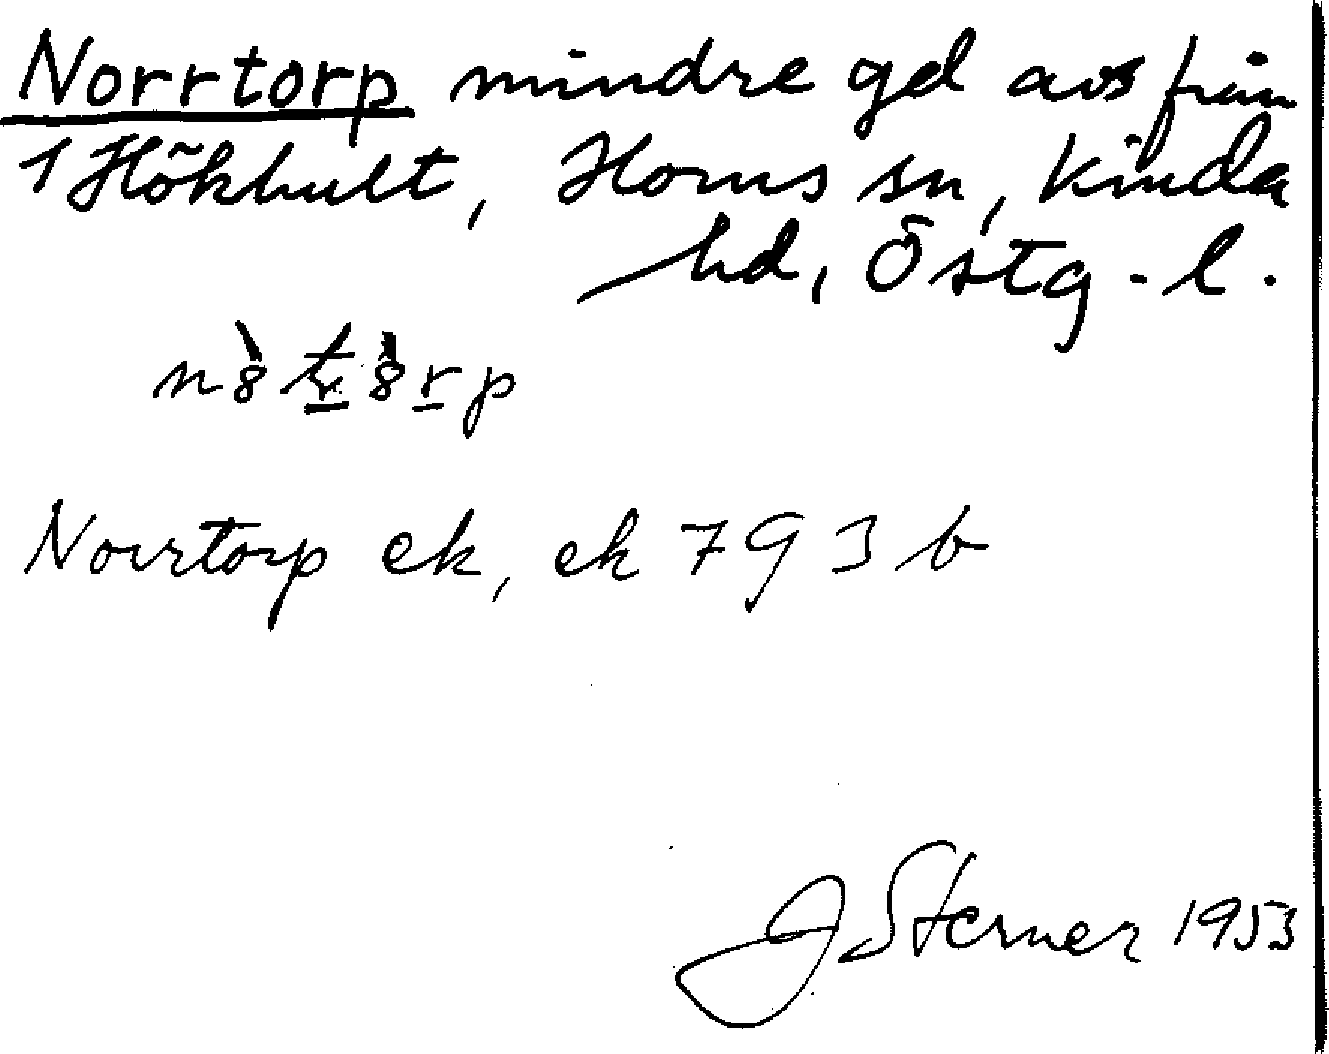 Norrtorp mindre gd avs från
1 Hökhult, Horns sn, Kinda
hd, Östg-l.
Norrtorp ek, ek 793 b
J Sterner 1953